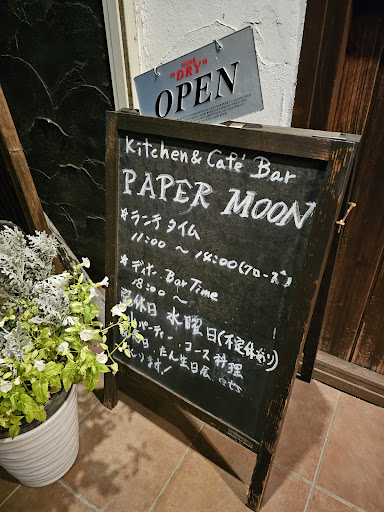 "DRY"
OPEN
Kitchen & Café Bar
PAPER MOON
* ランチタイム
11:00 〜 14:00(クローズ)
* ディナー Bar Time
18:00 〜
店休日 水曜日(不定休あり)
パーティー・コース料理
たん生日会 etc
ります!